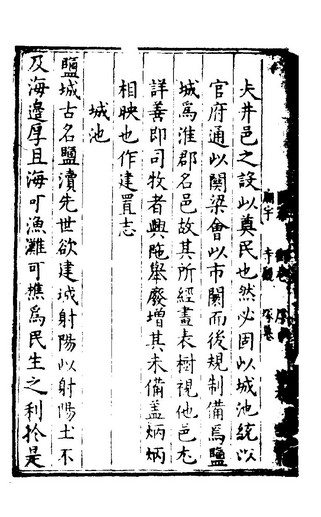 廟宇　寺觀　塚墓
夫井邑之設以奠民也然必固以城池統以
官府通以關梁會以市闤而後規制備焉鹽
城為淮郡名邑故其所經畫表樹視他邑尤
詳善即司牧者興陁舉廢增其未備蓋炳炳
相映也作建置志
城池
鹽城古名鹽瀆先世欲建城射陽以射陽土不
及海邊厚且海可漁灘可樵為民生之利於是